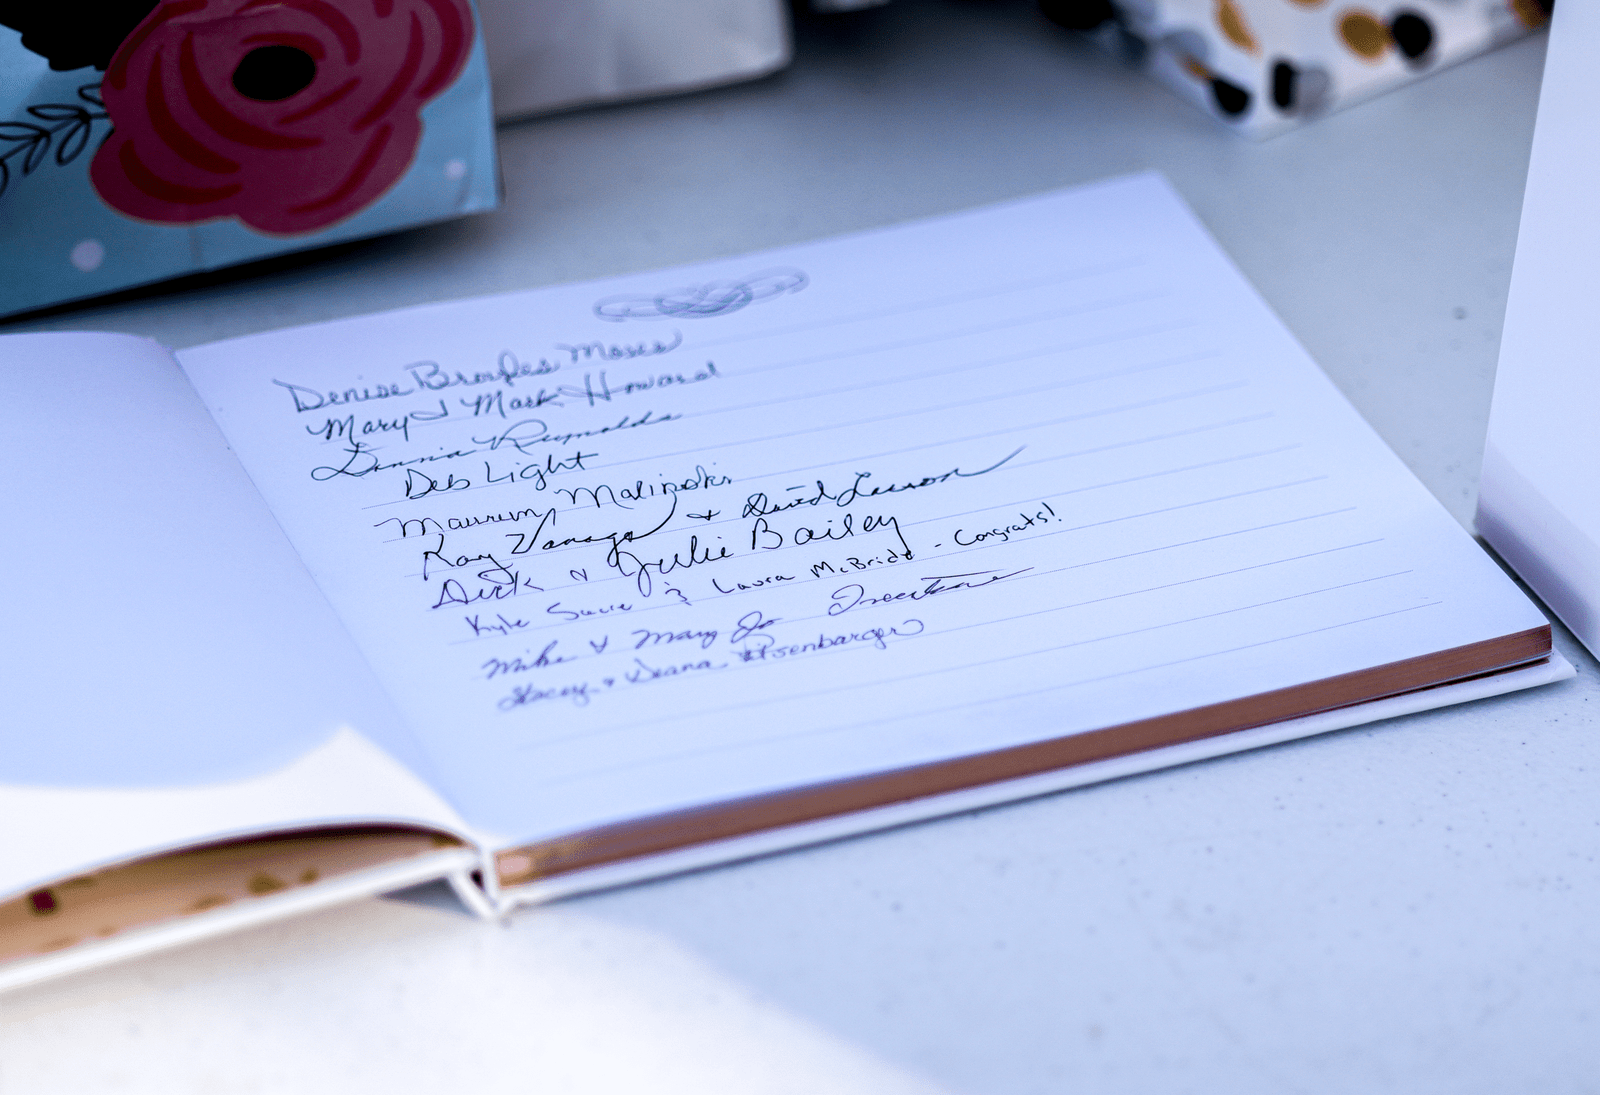 Denise Broyles Moses
Mary & Mark Howard
Donnia Reynolds
Deb Light
Maureen Malinoski
Kay Vanags & David Lawson
Dick & Julie Bailey
Kyle & Laura McBride - Congrats!
Mike & Mary Jo
Stacey & Deana Risenbarger